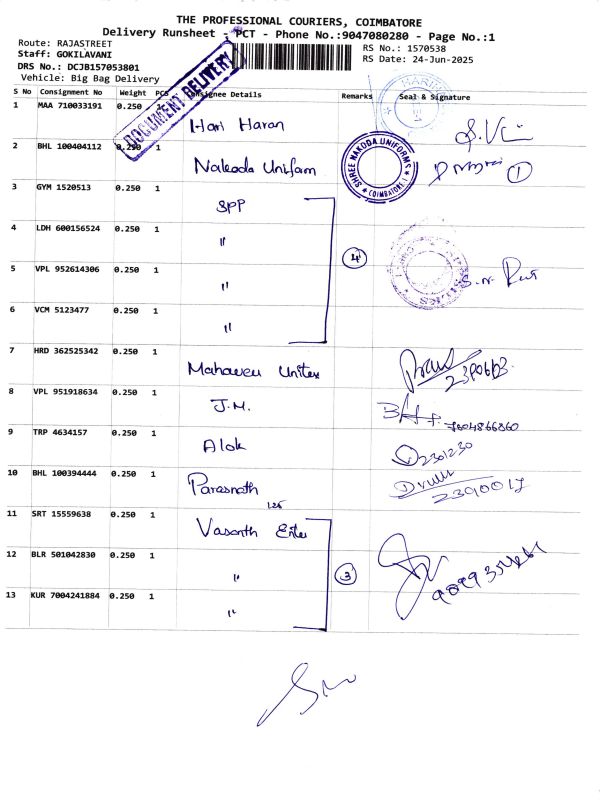 THE PROFESSIONAL COURIERS, COIMBATORE
Delivery Runsheet - PCT - Phone No.:9047080280 - Page No.:1
Route: RAJASTREET
Staff: GOKILAVANI
DRS No.: DCJB157053801
Vehicle: Big Bag Delivery
RS No.: 1570538
RS Date: 24-Jun-2025
DOCUMENT DELIVERY
S No Consignment No Weight PCS Consignee Details Remarks Seal & Signature
1 MAA 710033191 0.250 1 Hari Haran
2 BHL 100404112 0.250 1 Nakoda Uniform SHREE NAKODA UNIFORMS * COIMBATORE-1 * 1
3 GYM 1520513 0.250 1 SPP
4 LDH 600156524 0.250 1 " 4
5 VPL 952614306 0.250 1 "
6 VCM 5123477 0.250 1 "
7 HRD 362525342 0.250 1
8 VPL 951918634 0.250 1 J.M. 7604866860
9 TRP 4634157 0.250 1 Alok 2301230
10 BHL 100394444 0.250 1 Parasnath
11 SRT 15559638 0.250 1 Vasanth
12 BLR 501042830 0.250 1 " 3
13 KUR 7004241884 0.250 1 "